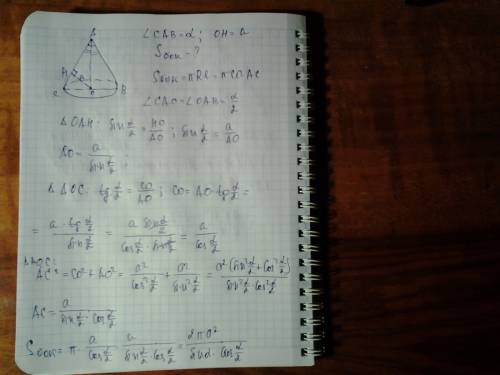 A
H a
C O B
∠CAB=α; OH=a
Sбок-?
Sбок=πRl=πCO·AC
∠CAO=∠OAH=α/2
△OAH: sin α/2 = HO/AO; sin α/2 = a/AO
AO= a/sin α/2;
△AOC: tg α/2 = CO/AO; CO=AO·tg α/2 =
= a·tg α/2 / sin α/2 = a sin α/2 / cos α/2·sin α/2 = a/cos α/2
△AOC:
AC²=CO²+AO²= a²/cos² α/2 + a²/sin² α/2 = a²(sin² α/2+cos² α/2)/sin² α/2·cos² α/2
AC= a/sin α/2·cos α/2
Sбок= π· a/cos α/2 · a/sin α/2·cos α/2 = 2πa²/sin α·cos α/2